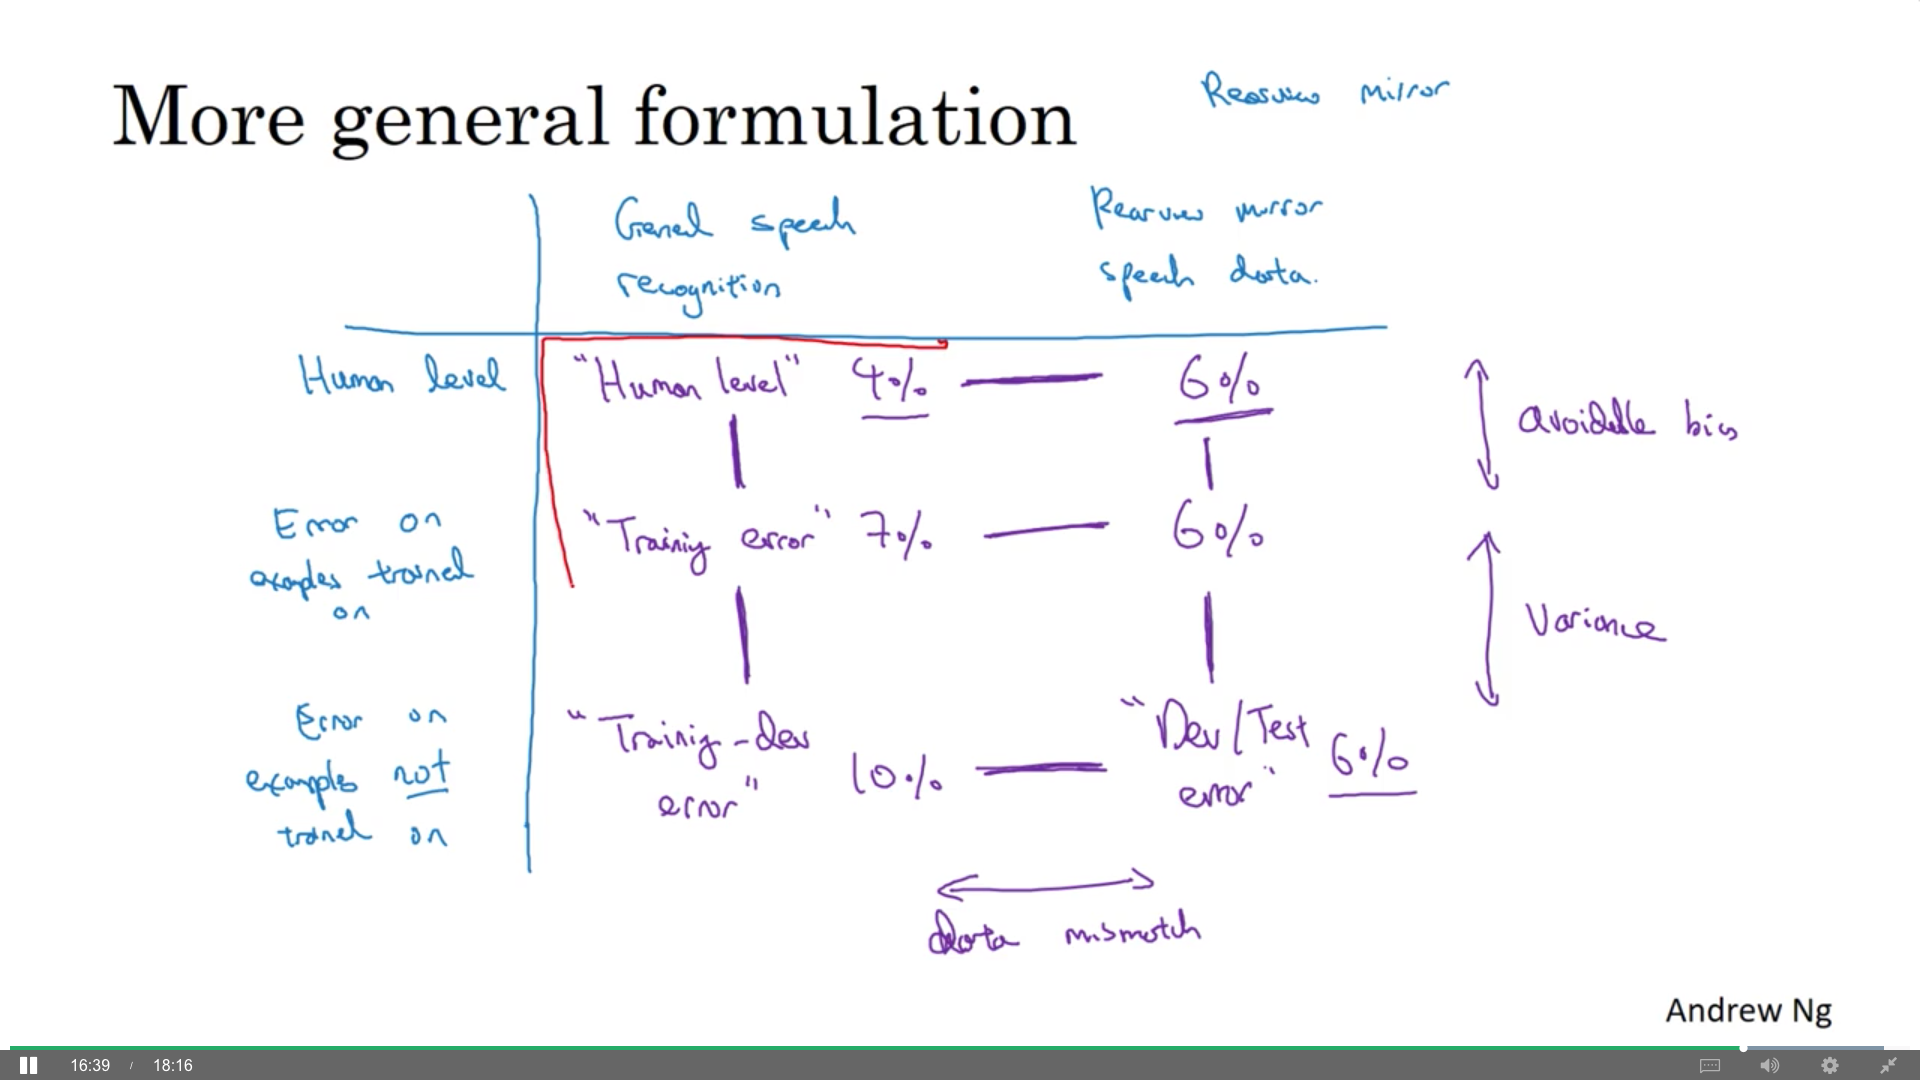 More general formulation
Rearview mirror
General speech
recognition
Rearview mirror
speech data.
Human level
"Human level" 4%
6%
avoidable bias
Error on
examples trained
on
"Training error" 7%
6%
Variance
Error on
examples not
trained on
"Training-dev
error"
10%
"Dev/Test
error"
6%
data mismatch
Andrew Ng
16:39 / 18:16